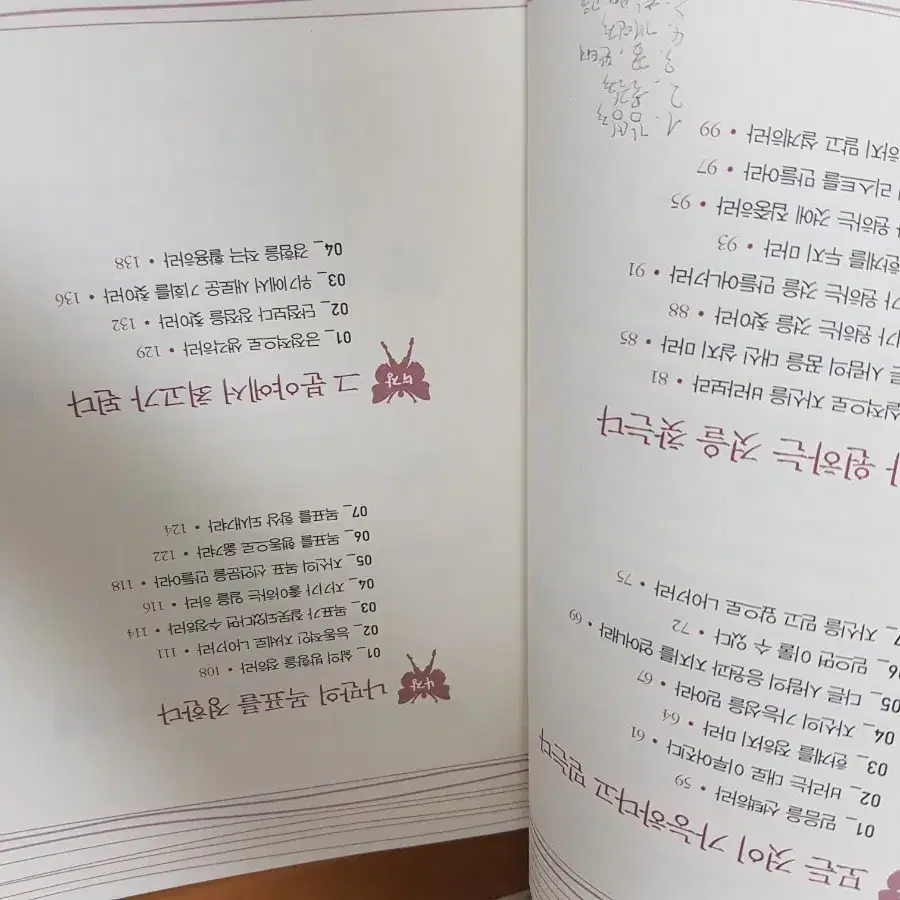 모든 것이 가능하다고 믿는다
01_ 믿음을 선택하라 • 59
02_ 바라는 대로 이루어진다 • 61
03_ 한계를 정하지 마라 • 64
04_ 자신의 가능성을 믿어라 • 67
05_ 다른 사람의 응원과 지지를 얻어내라 • 69
06_ 믿으면 이룰 수 있다 • 72
07_ 자신을 믿고 앞으로 나아가라 • 75
원하는 것을 찾는다
실적으로 자신을 바라보라 • 81
른 사람의 꿈을 대신 살지 마라 • 85
기가 원하는 것을 찾아라 • 88
가 원하는 것을 만들어나가라 • 91
한계를 두지 마라 • 93
원하는 것에 집중하라 • 95
리스트를 만들어라 • 97
하지 말고 설계하라 • 99
1.
2.
3. 꿈,
4. 개인적
5.
4장 나만의 목표를 정한다
01_ 삶의 방향을 정하라 • 108
02_ 능동적인 자세로 나아가라 • 111
03_ 목표가 잘못되었다면 수정하라 • 114
04_ 자기가 좋아하는 일을 하라 • 116
05_ 자신의 목표 선언문을 만들어라 • 118
06_ 목표를 행동으로 옮겨라 • 122
07_ 목표를 항상 되새겨라 • 124
5장 그 분야에서 최고가 된다
01_ 긍정적으로 생각하라 • 129
02_ 단점보다 장점을 찾아라 • 132
03_ 위기에서 새로운 기회를 찾아라 • 136
04_ 경험을 적극 활용하라 • 138